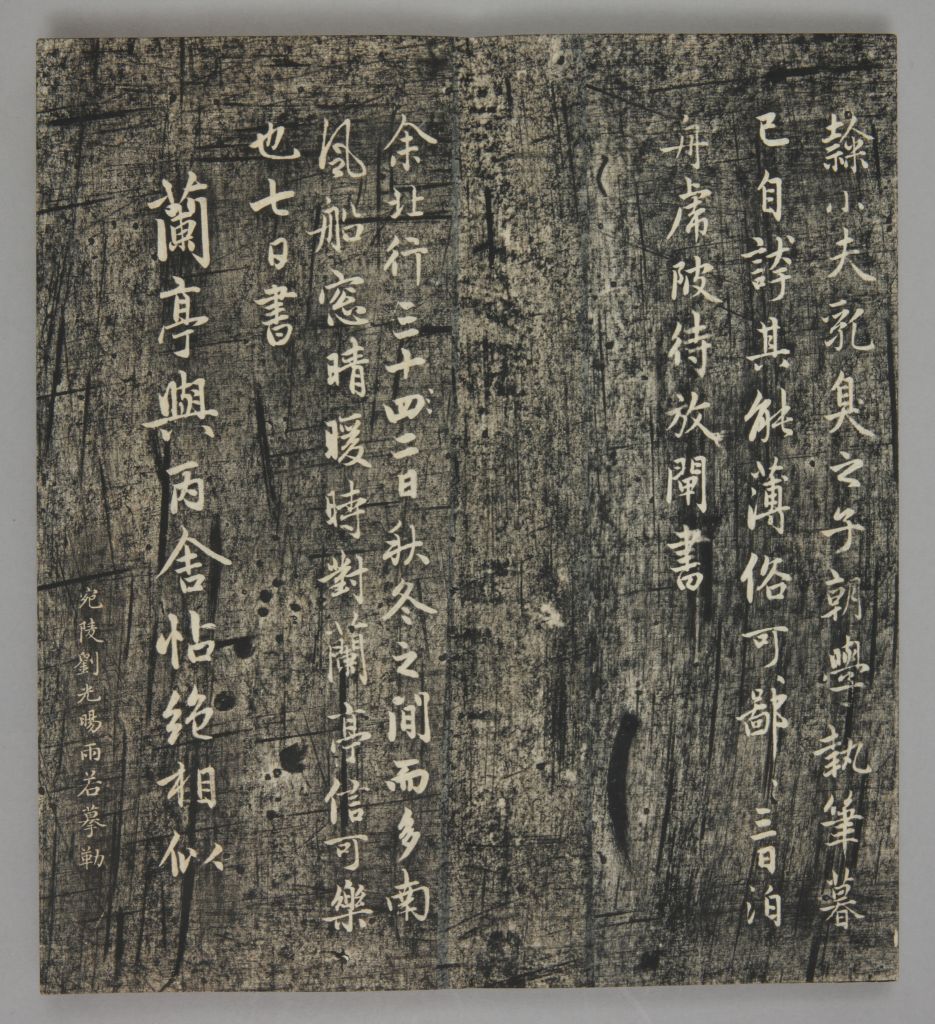 隸小夫乳臭之子朝學執筆暮
已自誇其能薄俗可〻鄙〻三日泊
舟虎陂待放閘書
余北行三十四二日秋冬之間而多南
風船窓晴暖時對蘭亭信可樂
也七日書
蘭亭與丙舍帖絶相似
宛陵劉光暘雨若摹勒